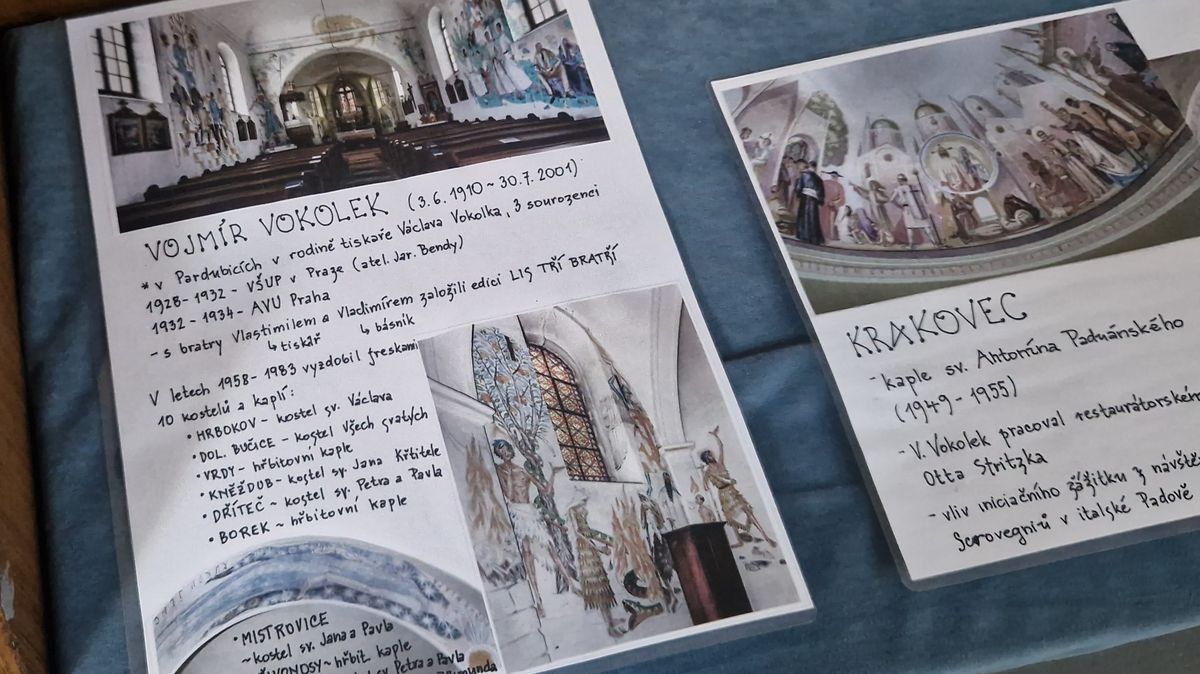 VOJMÍR VOKOLEK (3.6. 1910 ~ 30.7. 2001)
* v Pardubicích v rodině tiskaře Václava Vokolka, 3 sourozenci
1928 - 1932 - VŠUP v Praze (atel. Jar. Bendy)
1932 - 1934 - AVU Praha
- s bratry Vlastimilem a Vladimírem založili edici LIS TŘÍ BRATŘÍ
↳ tiskář ↳ básník
V letech 1958 - 1983 vyzdobil freskami
10 kostelů a kaplí:
• HRBOKOV - kostel sv. Václava
• DOL. BUČICE - kostel Všech svatých
• VRDY - hřbitovní kaple
• KNĚŽDUB - kostel sv. Jana Křtitele
• DŘÍTEČ ~ kostel sv. Petra a Pavla
• BOREK ~ hřbitovní kaple
• MISTROVICE
~ kostel sv. Jana a Pavla
~ hřbit. kaple
sv. Petra a Pavla
KRAKOVEC
- kaple sv. Antonína Paduánského
(1949 - 1955)
- V. Vokolek pracoval restaurátorskéh
Otta Stritzka
- vliv iniciačního zážitku z návště
Scrovegniů v italské Padově